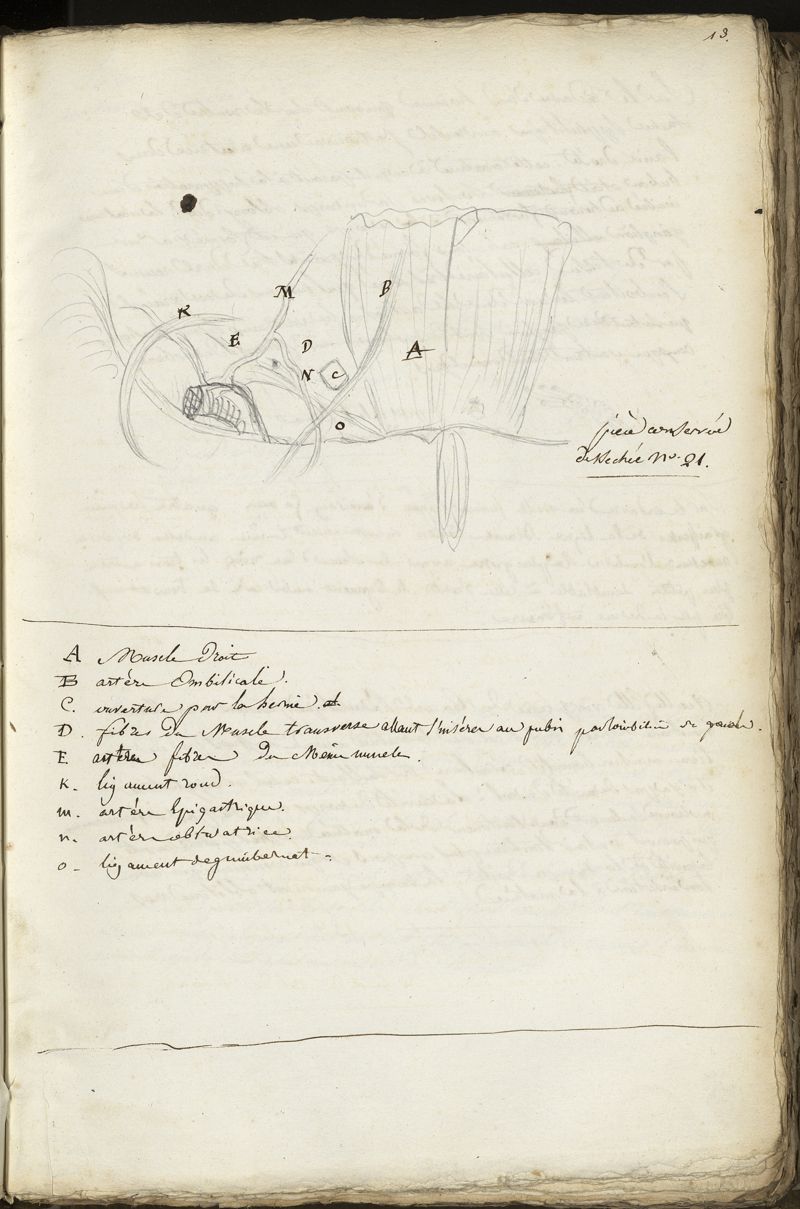 13.
K
M
B
E
D
A
N
C
O
pièce conservée
dessechée No. 21.
A Muscle Droit
B artère Ombilicale.
C. ouverture pour la hernie.
D. fibres du Muscle transverse allant s'insérer au pubis
E fibres du Même muscle.
K. ligament rond.
m. artére Epigastrique.
n. artére obturatrice.
o - ligament de guimbernat.